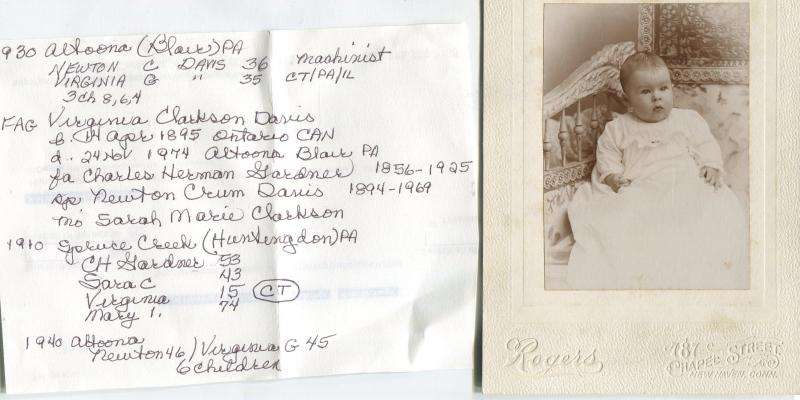 930 Altoona (Blair) PA
NEWTON C DAVIS 36 machinist
VIRGINIA G " 35 CT/PA/IL
3 ch 8, 6, 4
FAG Virginia Clarkson Davis
b. 14 Apr 1895 Ontario CAN
d. 24 Nov 1974 Altoona Blair PA
fa Charles Herman Gardner 1856-1925
sp Newton Crum Davis 1894-1969
mo Sarah Marie Clarkson
1910 Spruce Creek (Huntingdon) PA
CH Gardner 53
Sara C 43
Virginia 15 CT
Mary I. 74
1940 Altoona
Newton 46 / Virginia G 45
6 children
Rogers
787 CHAPEL STREET
NEW HAVEN, CONN.